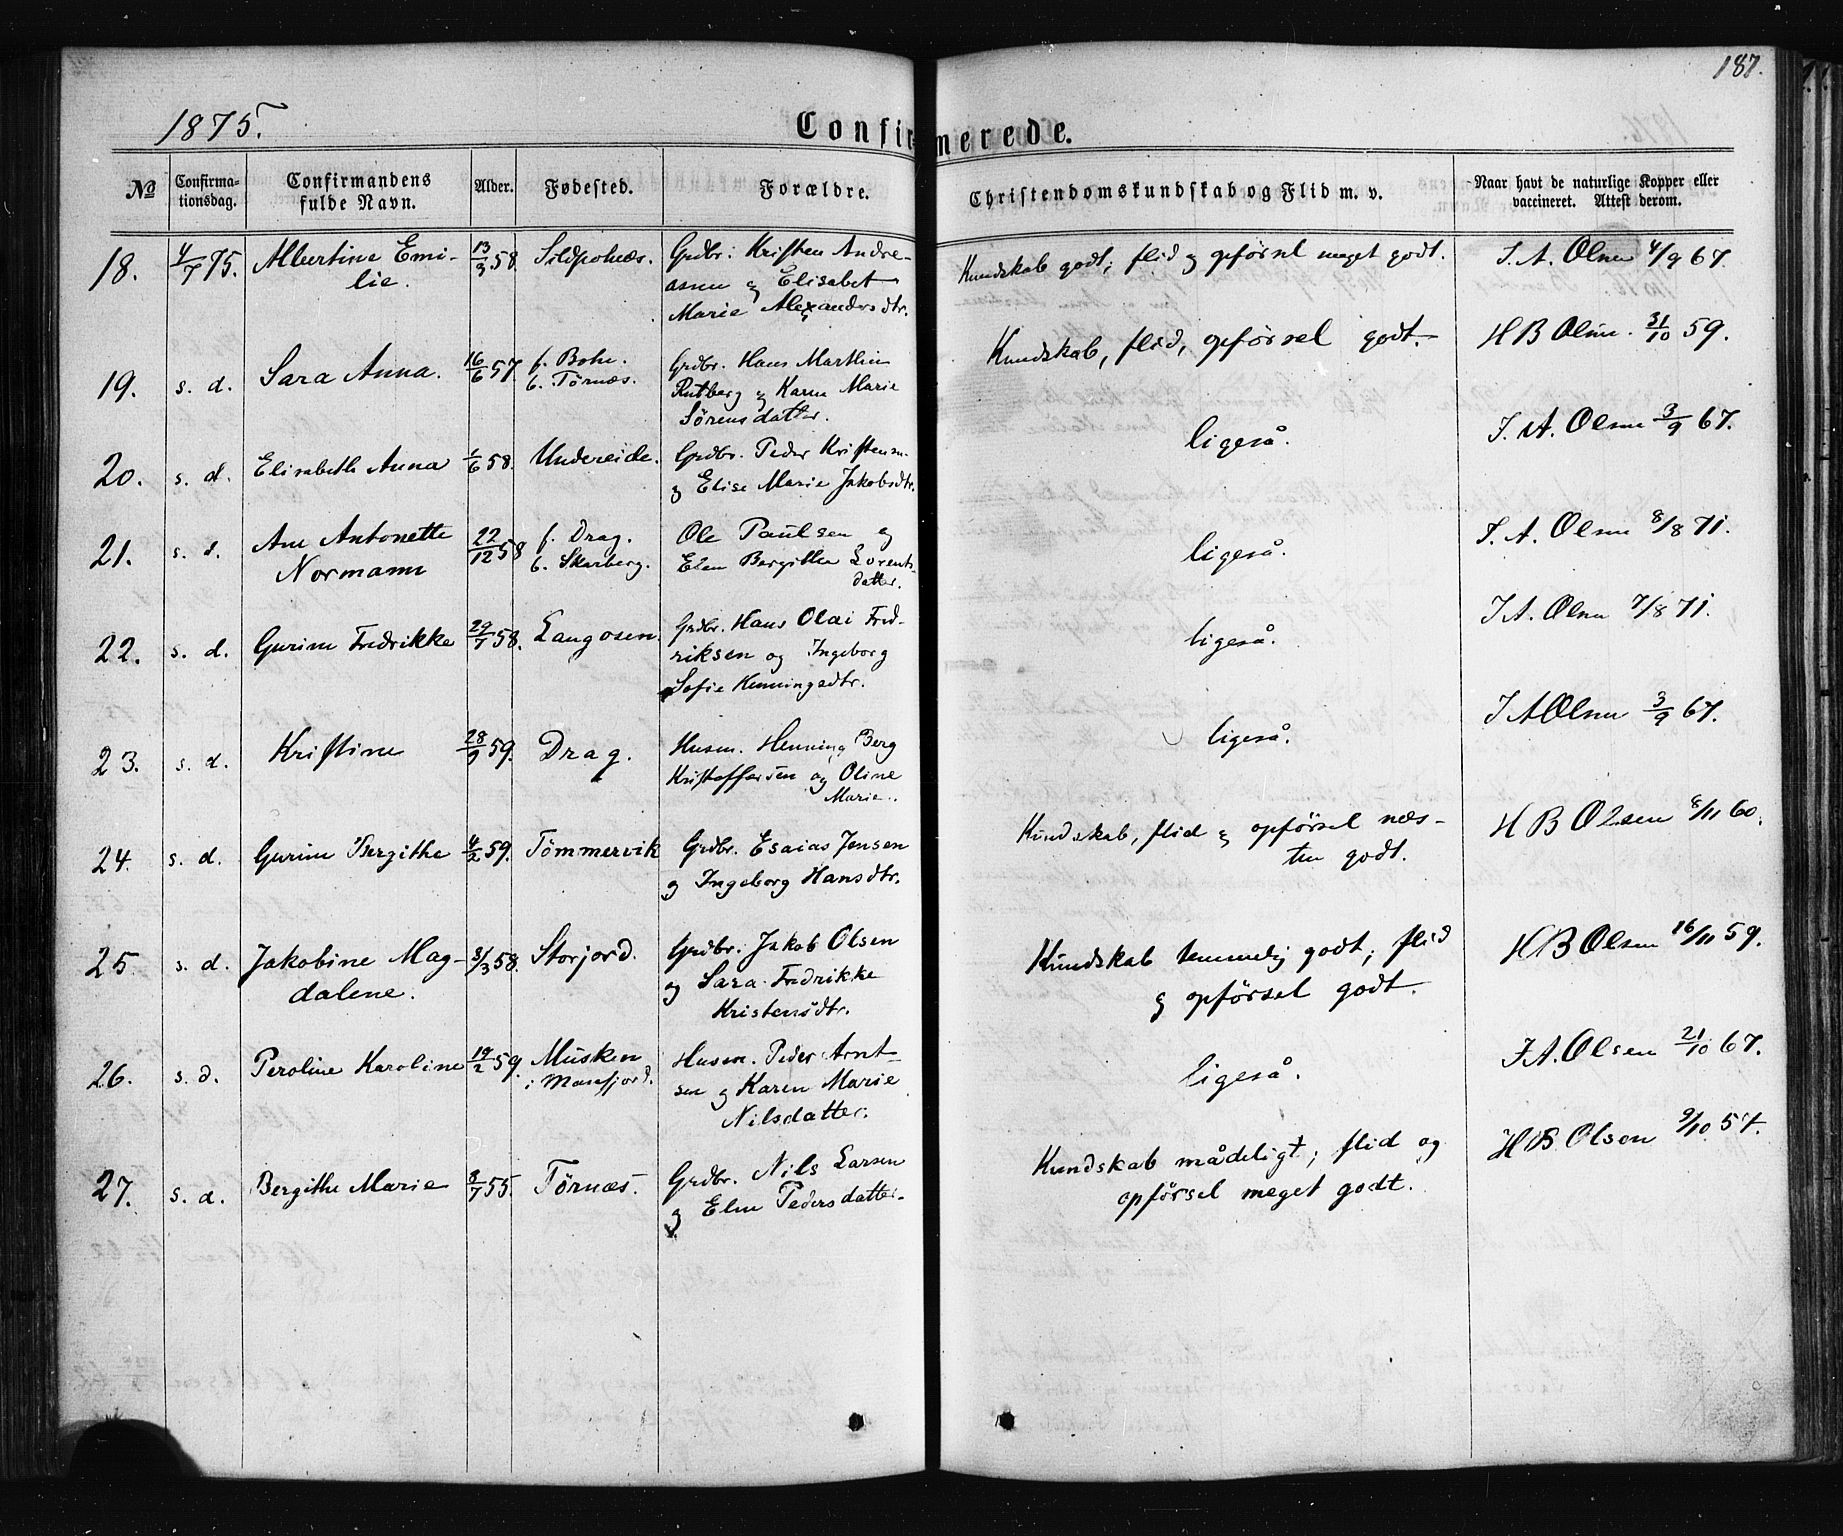 187.
1875.
Confirmerede.
No
Confirma-
tionsdag.
Confirmandens
fulde Navn.
Alder.
Fødested.
Forældre.
Christendomskundskab og Flid m. v.
Naar havt de naturlige Kopper eller
vaccineret. Attest derom.
18. 4/7 75. Albertine Emi- 13/9 58 Grdbr. Kristen Andre- Kundskab godt; flid og opførsel meget godt. J. A. Olsen 4/9 67.
lie. asen og Elisabet
Marie Alexandersdtr.
19. s. d. Sara Anna. 16/6 57. f. Bohn. Grdbr. Hans Marthin Kundskab, flid, opførsel godt. H B Olsen. 31/10 59.
b. Tørnæs. Rutberg og Karen Marie
Sørensdatter.
20. s. d. Elisabeth Anna 1/6 58. Undereide. Grdbr. Peder Kristensen ligeså. J. A. Olsen 3/9 67.
og Elise Marie Jakobsdtr.
21. s. d. Ane Antonette 22/12 58 f. Drag. Ole Paulsen og ligeså. J. A. Olsen 8/8 71.
Normann b. Skarberg. Elen Bergitha Lorents-
datter.
22. s. d. Gurine Fredrikke 29/7 58. Langosen. Grdbr. Hans Olai Fred- ligeså. J A. Olsen 7/8 71.
riksen og Ingeborg
Sofie Henningsdtr.
23. s. d. Kristine 28/9 59. Drag. Husm. Henning Berg ligeså. J A Olsen 3/9 67.
Kristoffersen og Oline
Marie.
24. s. d. Gurine Bergithe 4/2 59. Tømmervik Grdbr. Esaias Jensen Kundskab, flid og opførsel næs- H B Olsen 8/11 60.
og Ingeborg Hansdtr. ten godt.
25. s. d. Jakobine Mag- 3/3 58. Storjord. Grdbr. Jakob Olsen Kundskab temmelig godt; flid H B Olsen 16/11 59.
dalene. og Sara Fredrikke og opførsel godt.
Kristensdtr.
26. s. d. Peroline Karoline 19/2 59. Musken Husm. Peder Arnt- ligeså. J. A. Olsen 21/10 67.
i Manfjord. sen og Karen Marie
Nilsdatter.
27. s. d. Bergithe Marie 8/7 55. Tørnæs. Grdbr. Nils Larsen Kundskab mådeligt; flid og H B. Olsen 9/10 57.
og Elen Pedersdatter. opførsel meget godt.